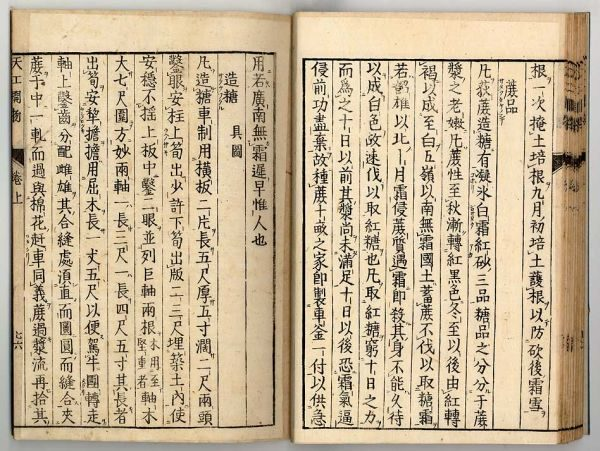 根一次掩土培根九月初培土護根以防砍後霜雪
蔗品
凡荻蔗造糖有凝氷白霜紅砂三品糖品之分分于蔗
漿之老嫩凡蔗性至秋漸轉紅黒色冬至以後由紅轉
褐以成至白五嶺以南無霜國土蓄蔗不伐以取糖霜
若韶雄以北十月霜侵蔗質遇霜即殺其身不能久待
以成白色故速伐以取紅糖也凡取紅糖窮十日之力
而爲之十日以前其漿尚未滿足十日以後恐霜氣逼
侵前功盡棄故種蔗十畝之家即製車釜一付以供急
用若廣南無霜遲早惟人也
造糖 具圖
凡造糖車制用横板二片長五尺厚五寸濶二尺兩頭
鑿眼安柱上筍出少許下筍出版二三尺埋築土内使
安穩不揺上板中鑿二眼並列巨軸兩根木用至堅重者軸木
大七尺圍方妙兩軸一長三尺一長四尺五寸其長者
出筍安犂擔擔用屈木長一丈五尺以便駕牛團轉走
軸上鑿齒分配雌雄其合縫處湏直而圓圓而縫合夾
蔗于中一軋而過與棉花赶車同義蔗過漿流再拾其
天工開物 卷上 七六